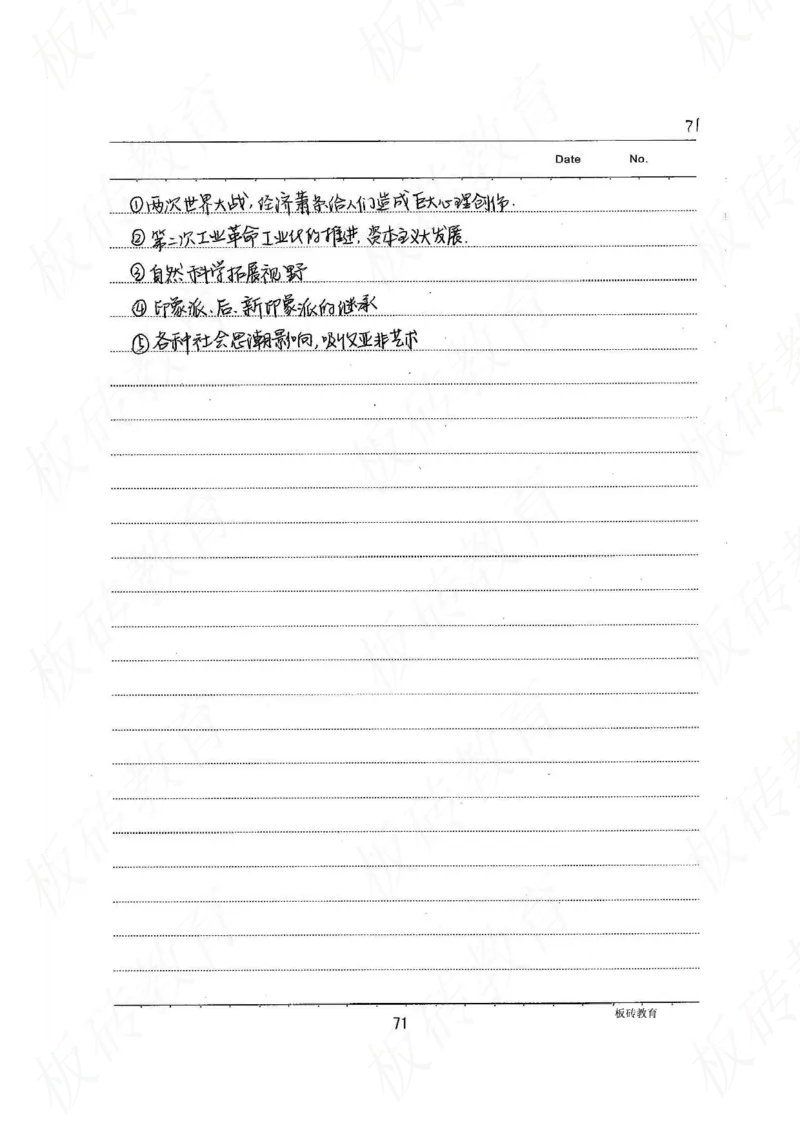 71
Date No.
①两次世界大战,经济萧条给人们造成巨大心理创伤.
②第二次工业革命工业化的推进,资本主义大发展.
③自然科学拓展视野
④印象派、后、新印象派的继承
⑤各种社会思潮影响,吸收亚非艺术
71
板砖教育